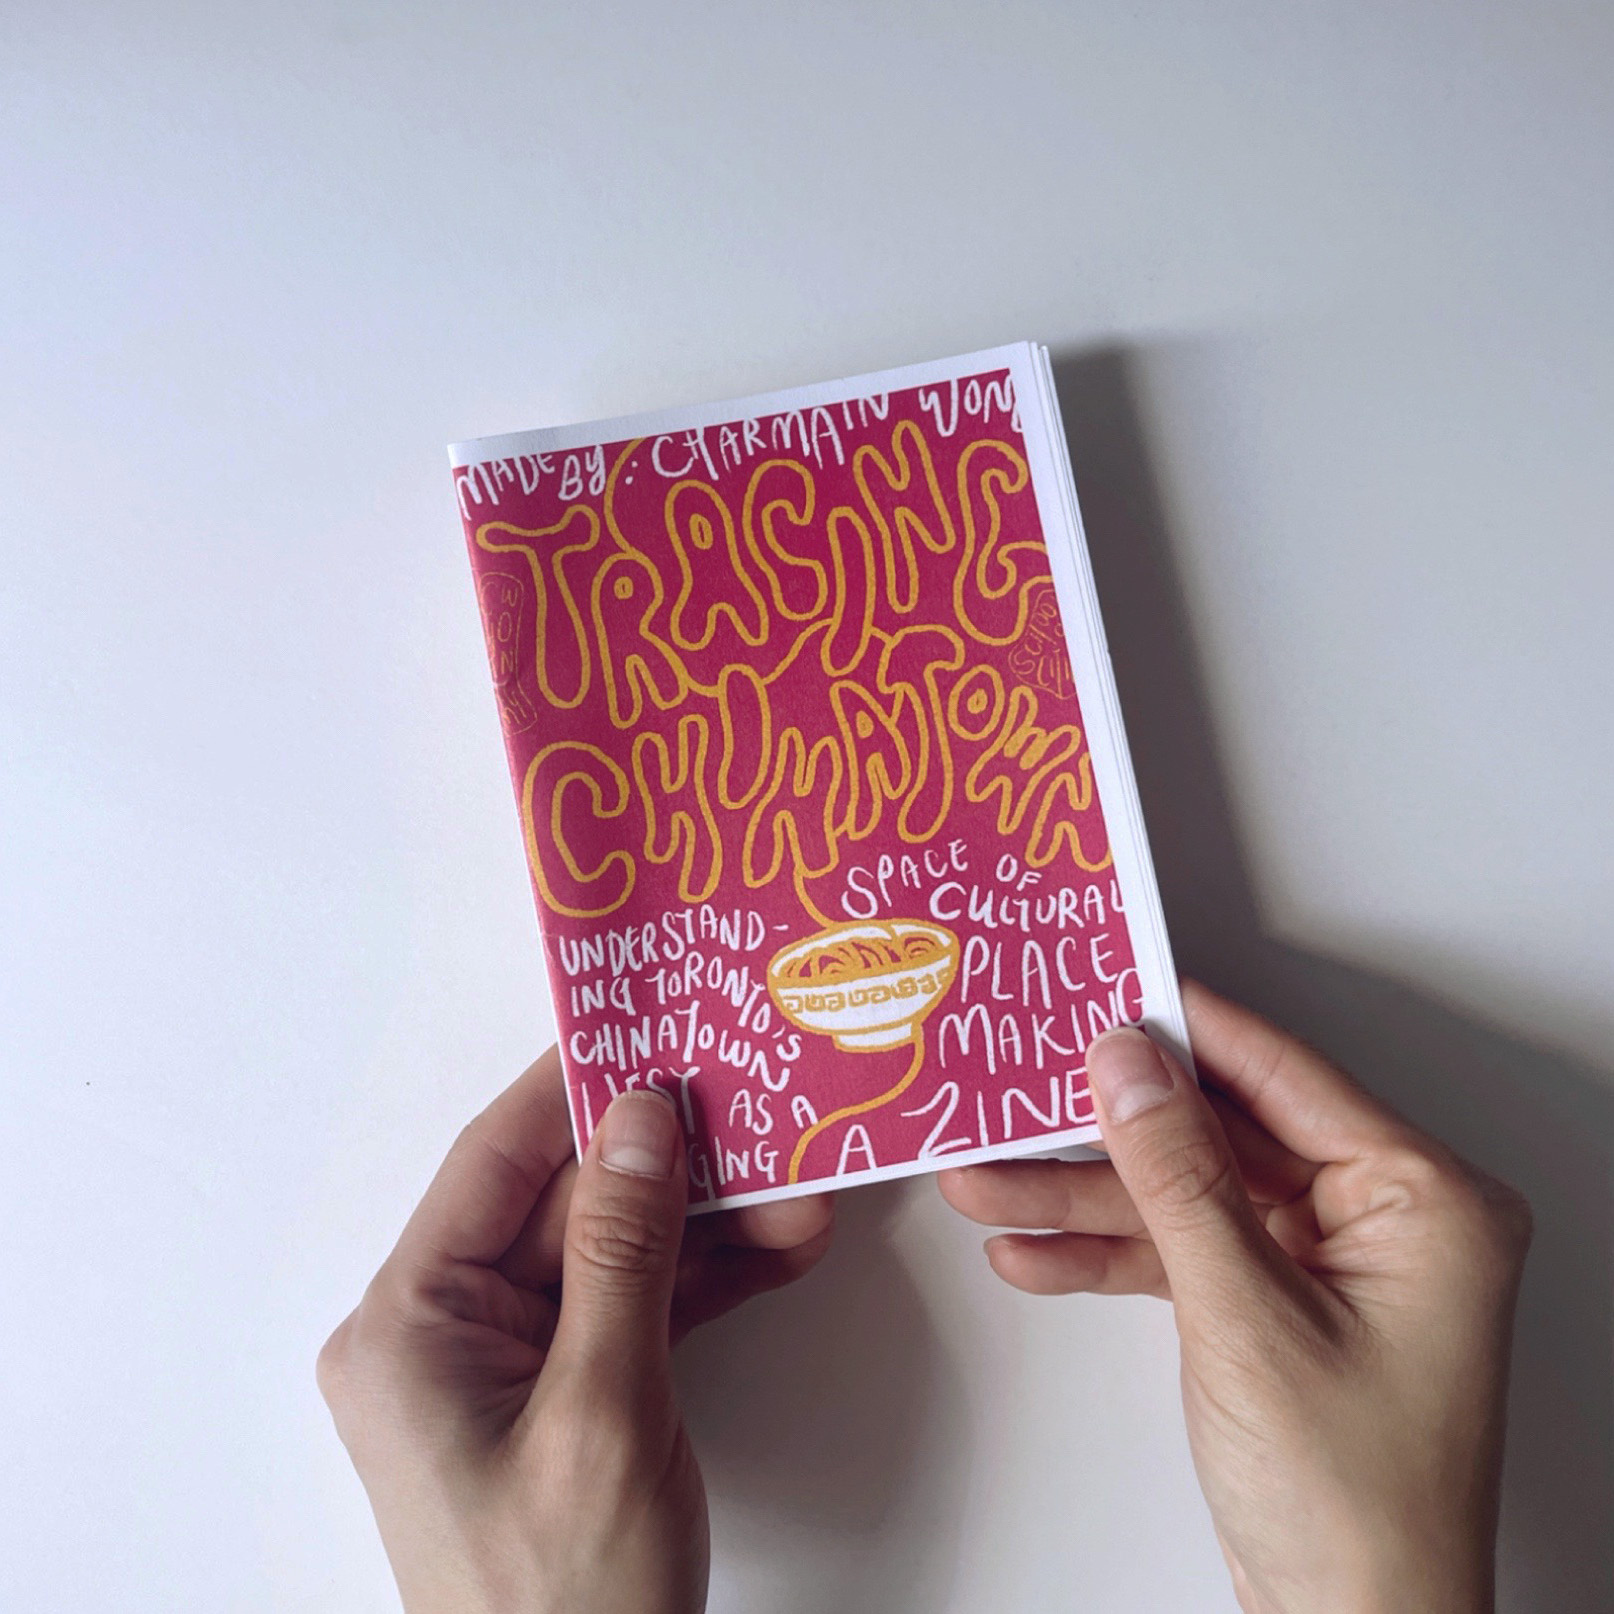 MADE BY: CHARMAIN WONG
TRACING
CHINATOWN
UNDERSTAND-
ING TORONTO'S
CHINATOWN
WEST AS A
SPACE OF
CULTURAL
PLACE
MAKING
A ZINE